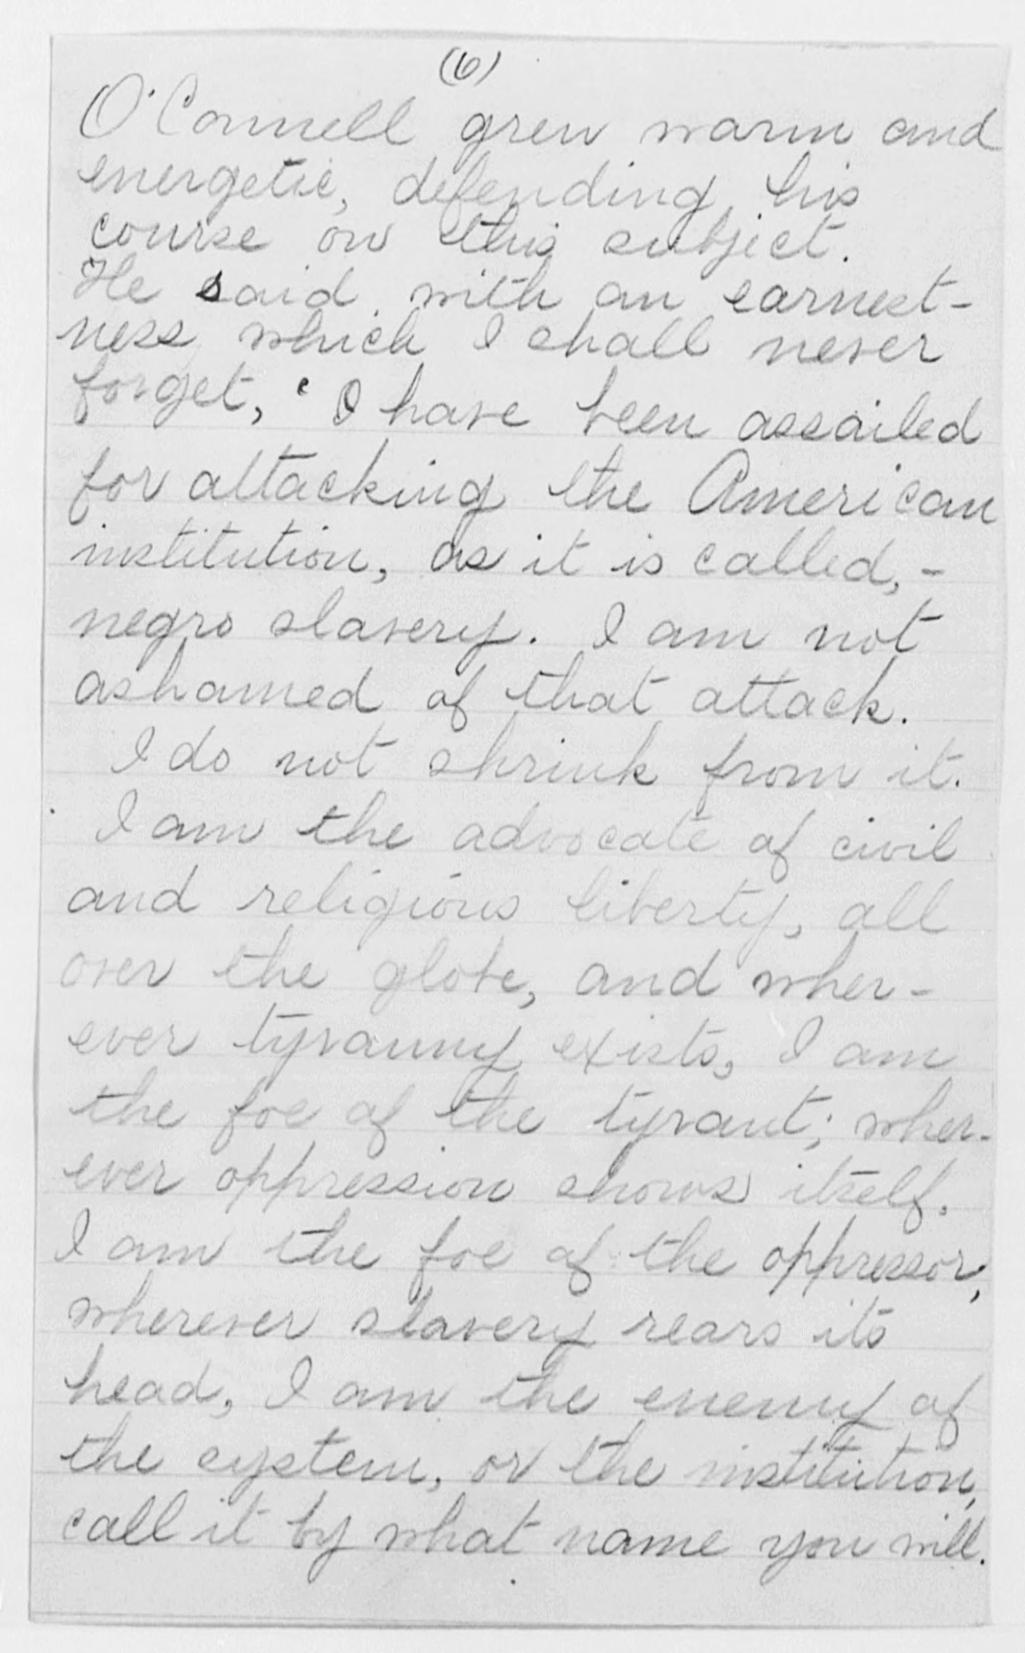 (6)
O'Connell grew warm and
energetic, defending his
course on this subject.
He said with an earnest-
ness which I shall never
forget, ' I have been assailed
for attacking the American
institution, as it is called, -
negro slavery. I am not
ashamed of that attack.
I do not shrink from it.
I am the advocate of civil
and religious liberty, all
over the globe, and wher-
ever tyranny exists, I am
the foe of the tyrant; wher-
ever oppression shows itself,
I am the foe of the oppressor;
wherever slavery rears its
head, I am the enemy of
the system, or the institution,
call it by what name you will.